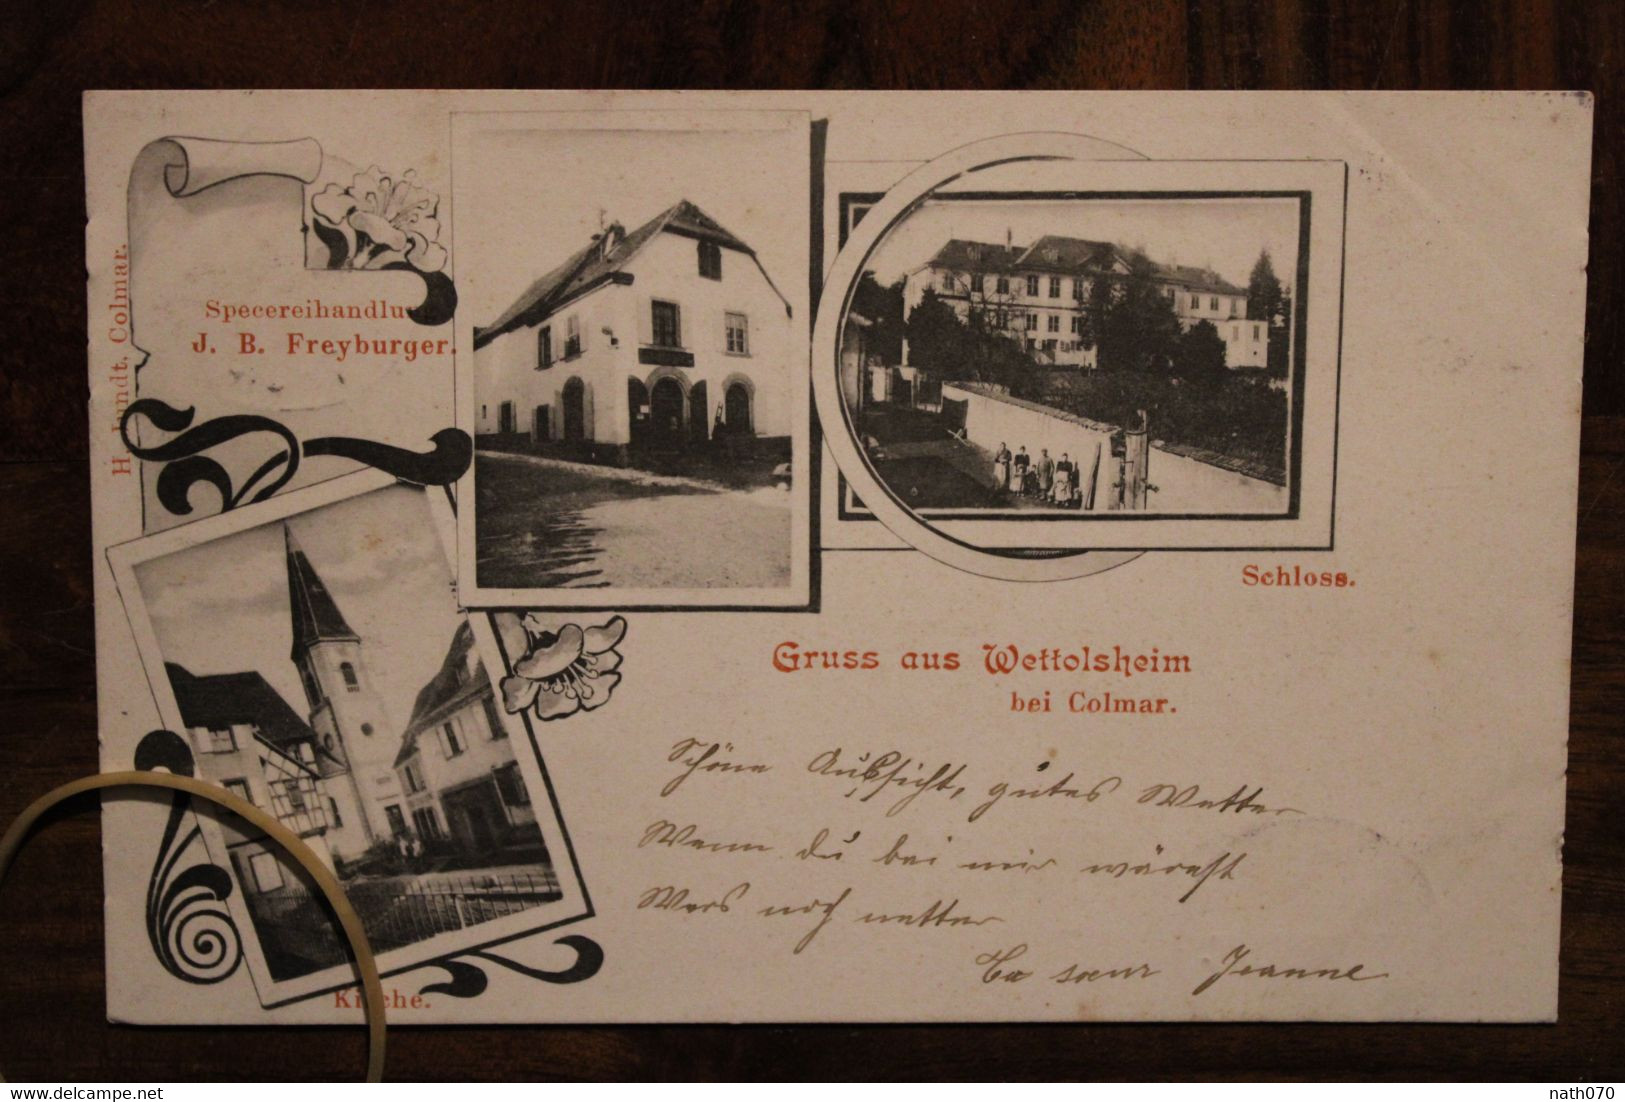 H. Jundt, Colmar.
Specereihandlung
J. B. Freyburger.
Schloss.
Gruss aus Wettolsheim
bei Colmar.
Schöne Aussicht, gutes Wetter
Wenn du bei mir wärest
Wärs noch netter
Ta sœur Jeanne
Kirche.
nath070